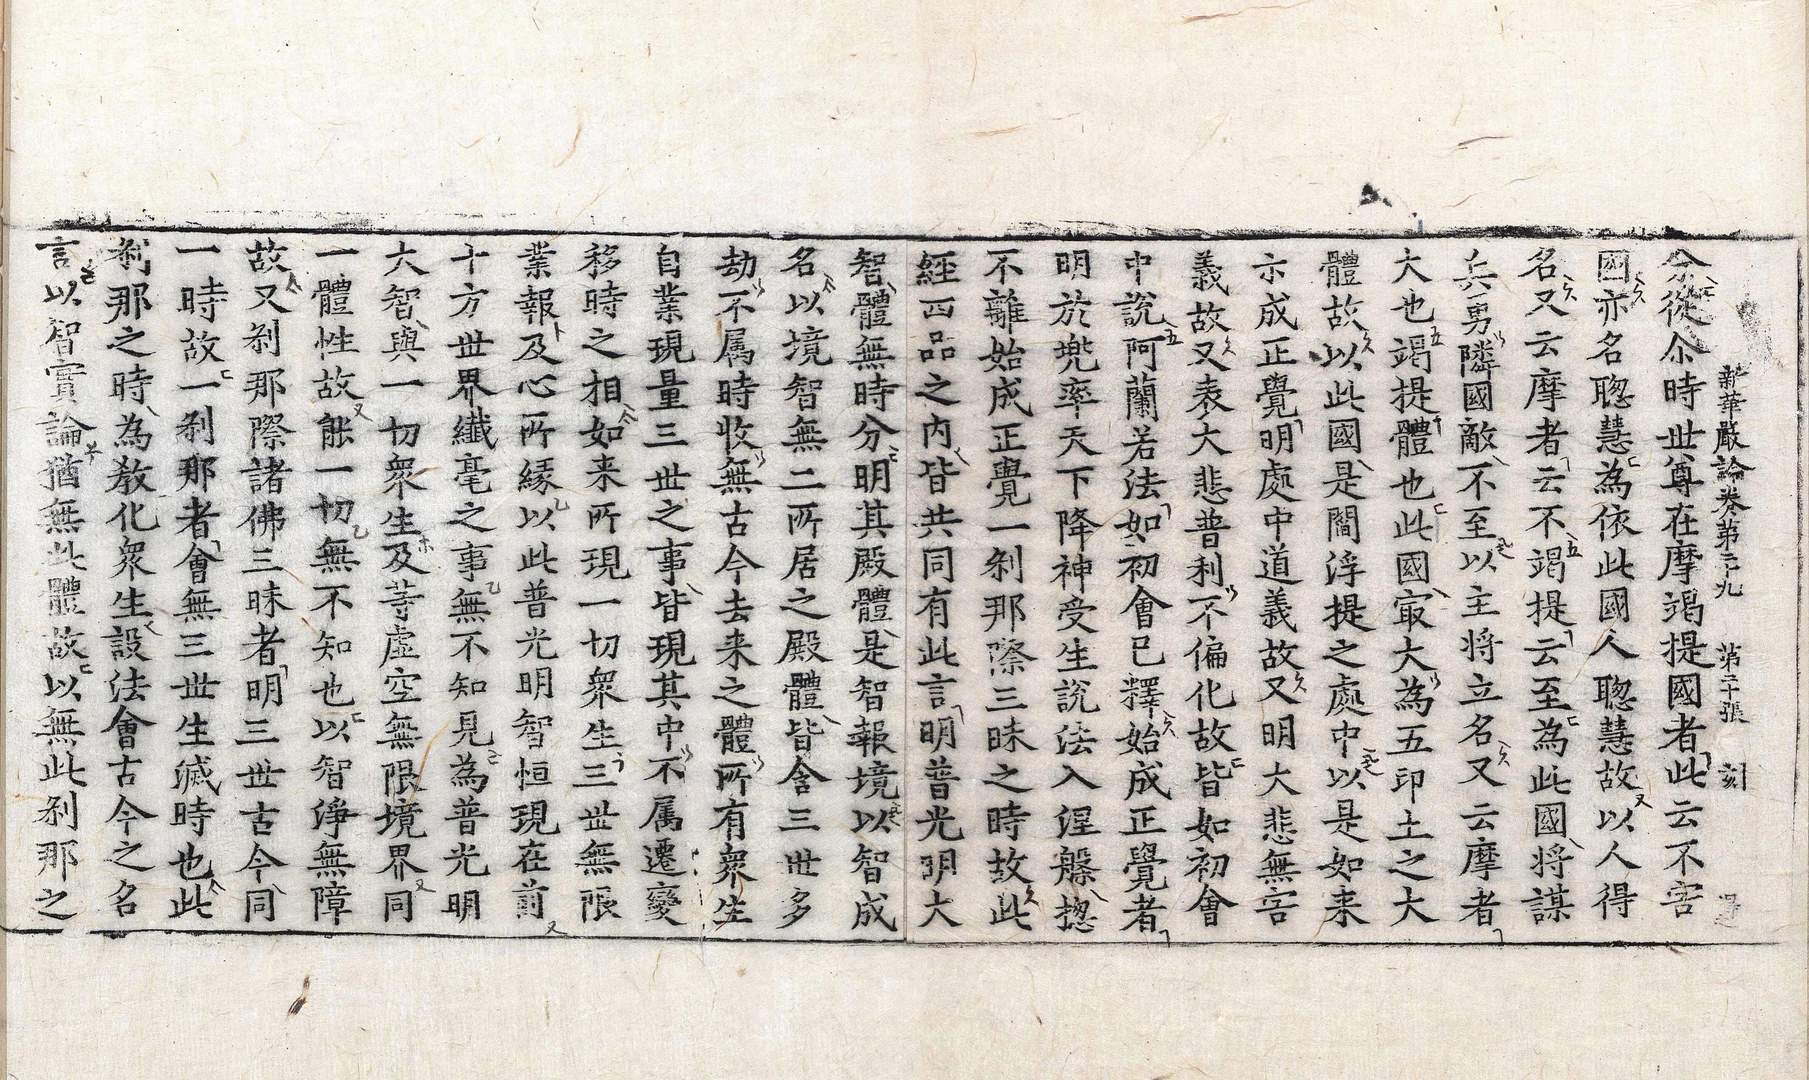 新華嚴論卷第三十九 第二十張 刻
𠆸從尒時世尊在摩竭提國者此云不害
國亦名聰慧為依此國人聰慧故以人得
名又云摩者云不竭提云至為此國将謀
兵勇隣國敵不至以主将立名又云摩者
大也竭提體也此國㝡大為五印土之大
體故以此國是閻浮提之處中以是如来
示成正覺明處中道義故又明大悲無害
義故又表大悲普利不偏化故皆如初會
中說阿蘭若法如初會已釋始成正覺者
明於兜率天下降神受生說法入涅槃揔
不離始成正覺一刹那際三昧之時故此
經四品之内皆共同有此言明普光明大
智體無時分明其殿體是智報境以智成
名以境智無二所居之殿體皆含三世多
劫不属時收無古今去来之體所有衆生
自業現量三世之事皆現其中不属遷變
移時之相如来所現一切衆生三世無限
業報及心所縁以此普光明智恒現在前
十方世界纖毫之事無不知見為普光明
大智與一切衆生及等虛空無限境界同
一體性故能一切無不知也以智淨無障
故又刹那際諸佛三昧者明三世古今同
一時故一刹那者會無三世生滅時也此
刹那之時為教化衆生設法會古今之名
言以智實論猶無此體故以無此刹那之